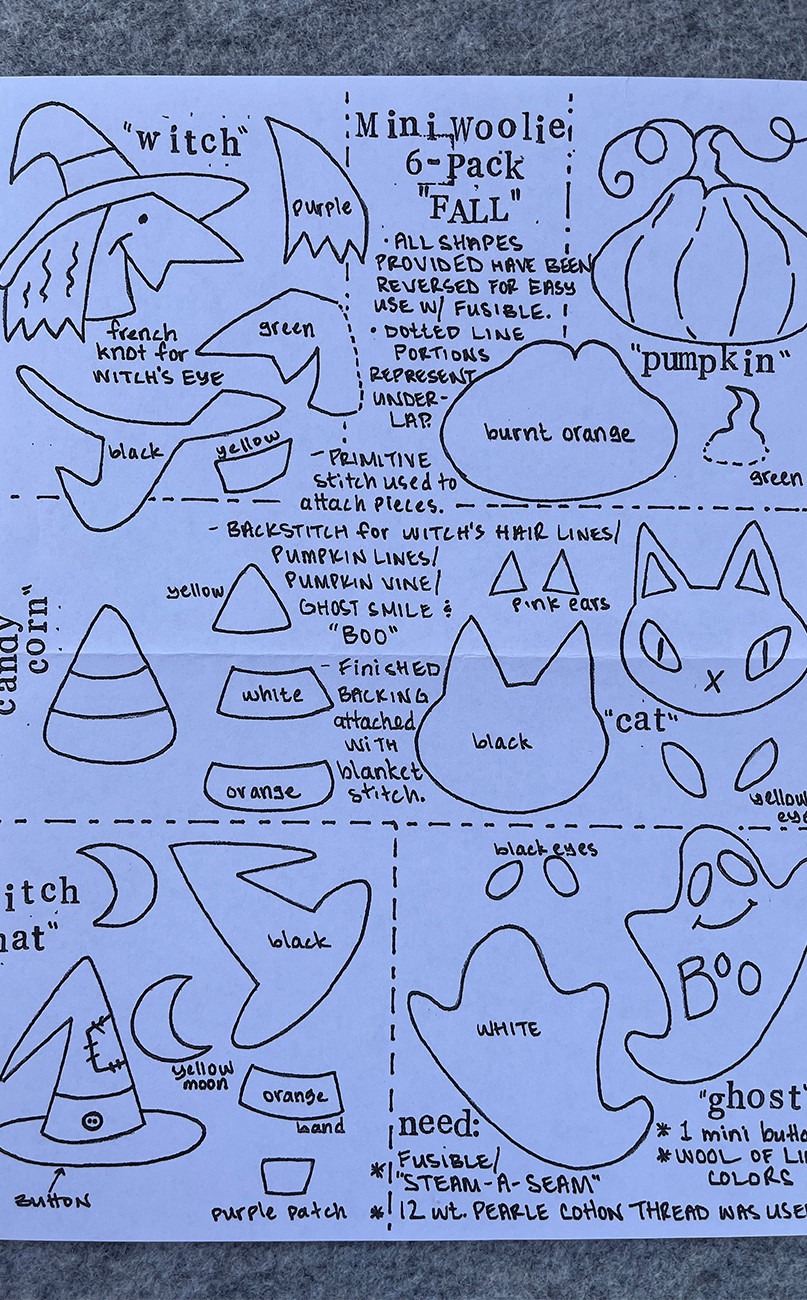 "witch"
purple
french
knot for
WITCH'S EYE
green
black
yellow
Mini Woolie
6-Pack
"FALL"
· ALL SHAPES
PROVIDED HAVE BEEN
REVERSED FOR EASY
USE W/ FUSIBLE.
· DOTTED LINE
PORTIONS
REPRESENT
UNDER-
LAP.
- PRIMITIVE
stitch used to
attach pieces.
burnt orange
"pumpkin"
green
- BACKSTITCH for WITCH'S HAIR LINES/
PUMPKIN LINES/
PUMPKIN VINE/
GHOST SMILE &
"BOO"
- FINISHED
BACKING
attached
WITH
blanket
stitch.
candy
corn"
yellow
white
orange
pink ears
black
"cat"
yellow
eye
itch
hat"
black
yellow
moon
orange
band
BUTTON
purple patch
black eyes
WHITE
BOO
"ghost"
need:
* FUSIBLE/
"STEAM-A-SEAM"
* 12 wt. PEARLE COTTON THREAD WAS USE
* 1 mini butto
* WOOL OF
COLORS